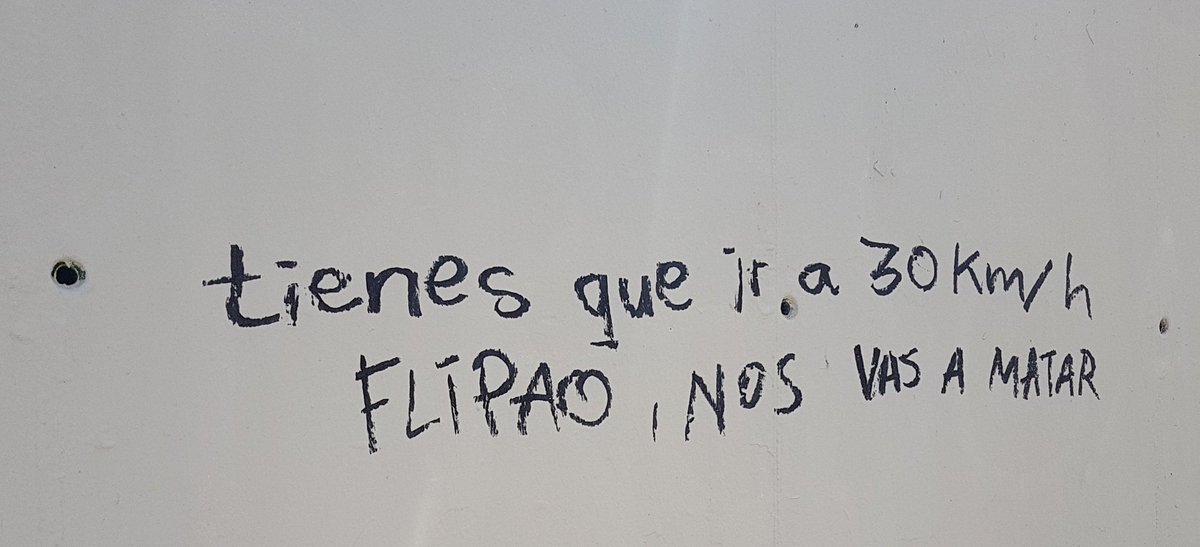 tienes que ir a 30 km/h
FLIPAO, NOS VAS A MATAR